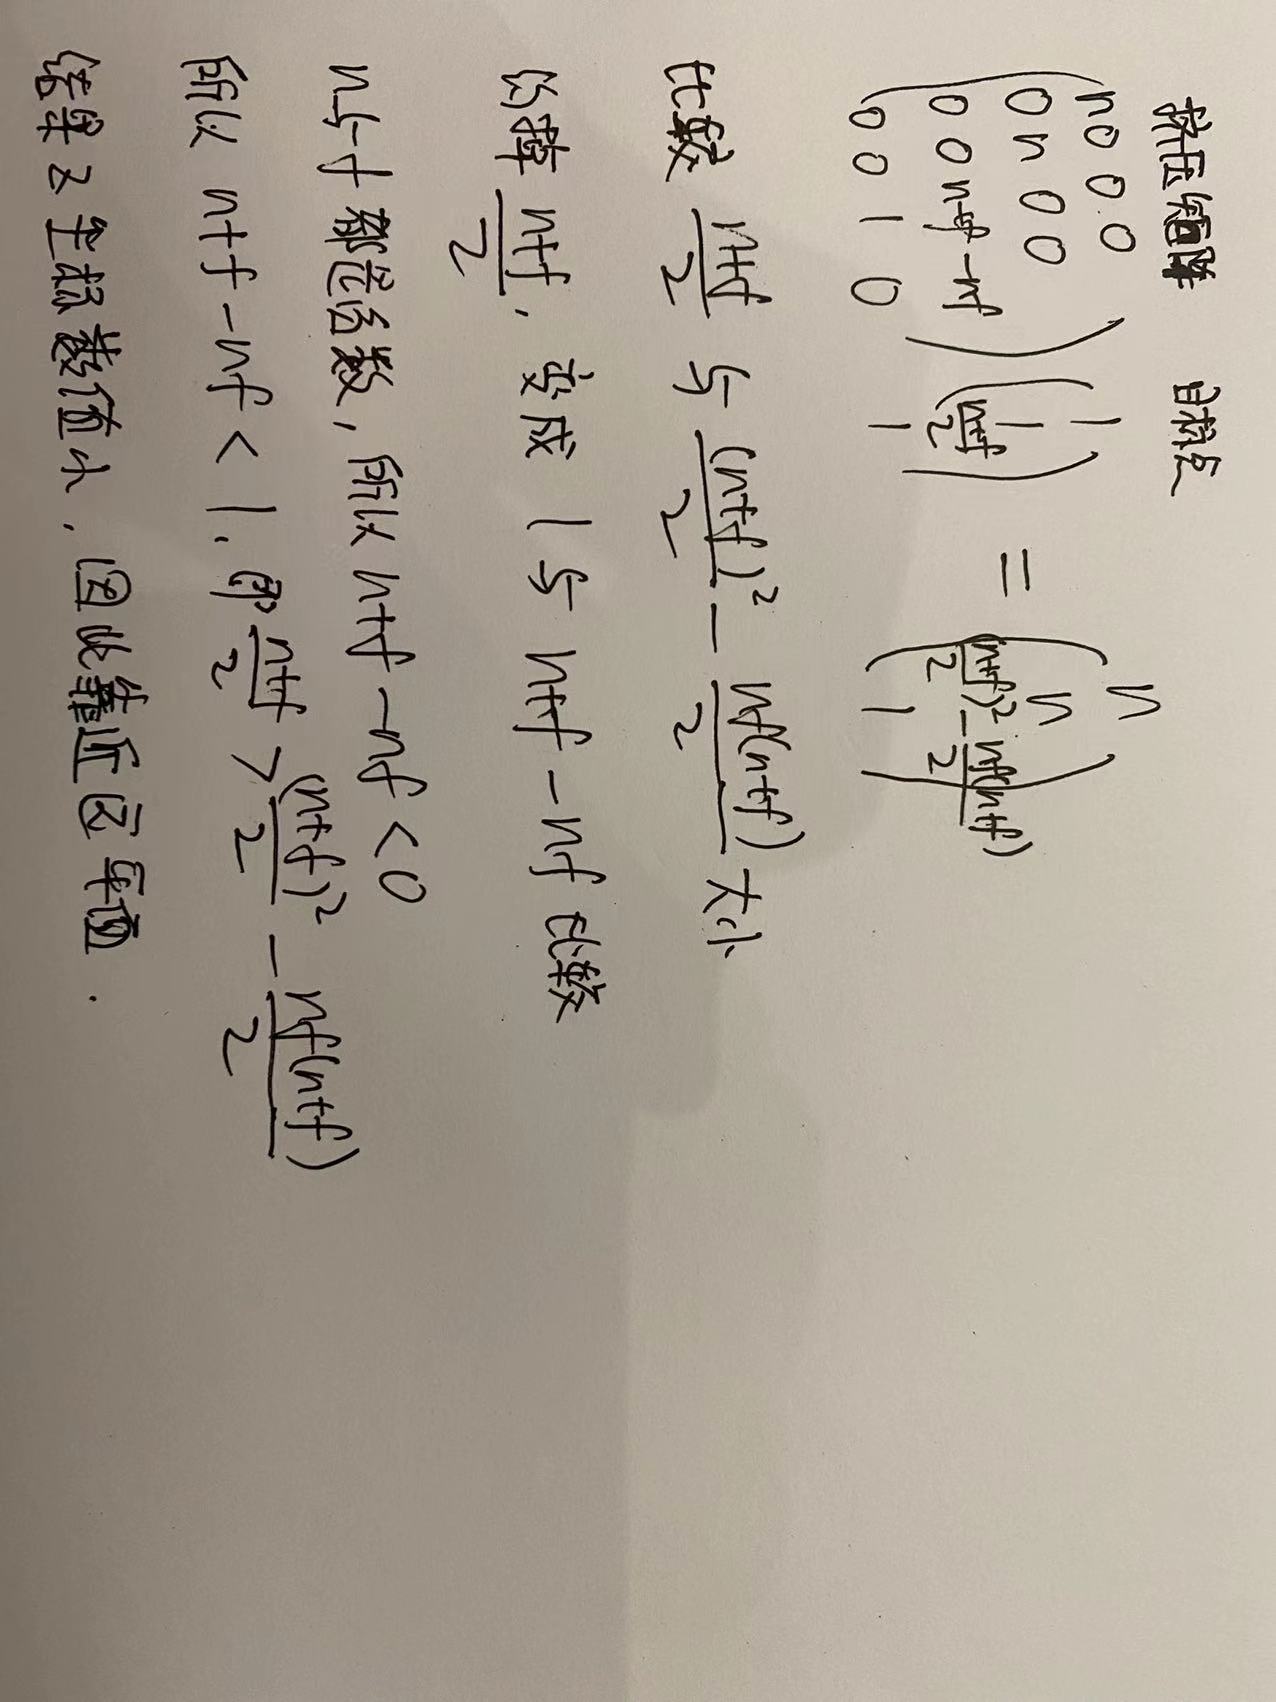 挤压矩阵 目标点
( n 0 0 0 ) ( 1 ) ( n )
( 0 n 0 0 ) ( 1 ) = ( n )
( 0 0 n+f -nf ) ( (n+f)/2 ) ( (n+f)²/2 - nf(n+f)/2 )
( 0 0 1 0 ) ( 1 ) ( 1 )
比较 (n+f)/2 与 (n+f)²/2 - nf(n+f)/2 大小
约掉 (n+f)/2, 变成 1 与 n+f-nf 比较
n与f都是负数, 所以 n+f-nf<0
所以 n+f-nf<1. 即 (n+f)/2 > (n+f)²/2 - nf(n+f)/2
结果z坐标数值小, 因此靠近远平面.